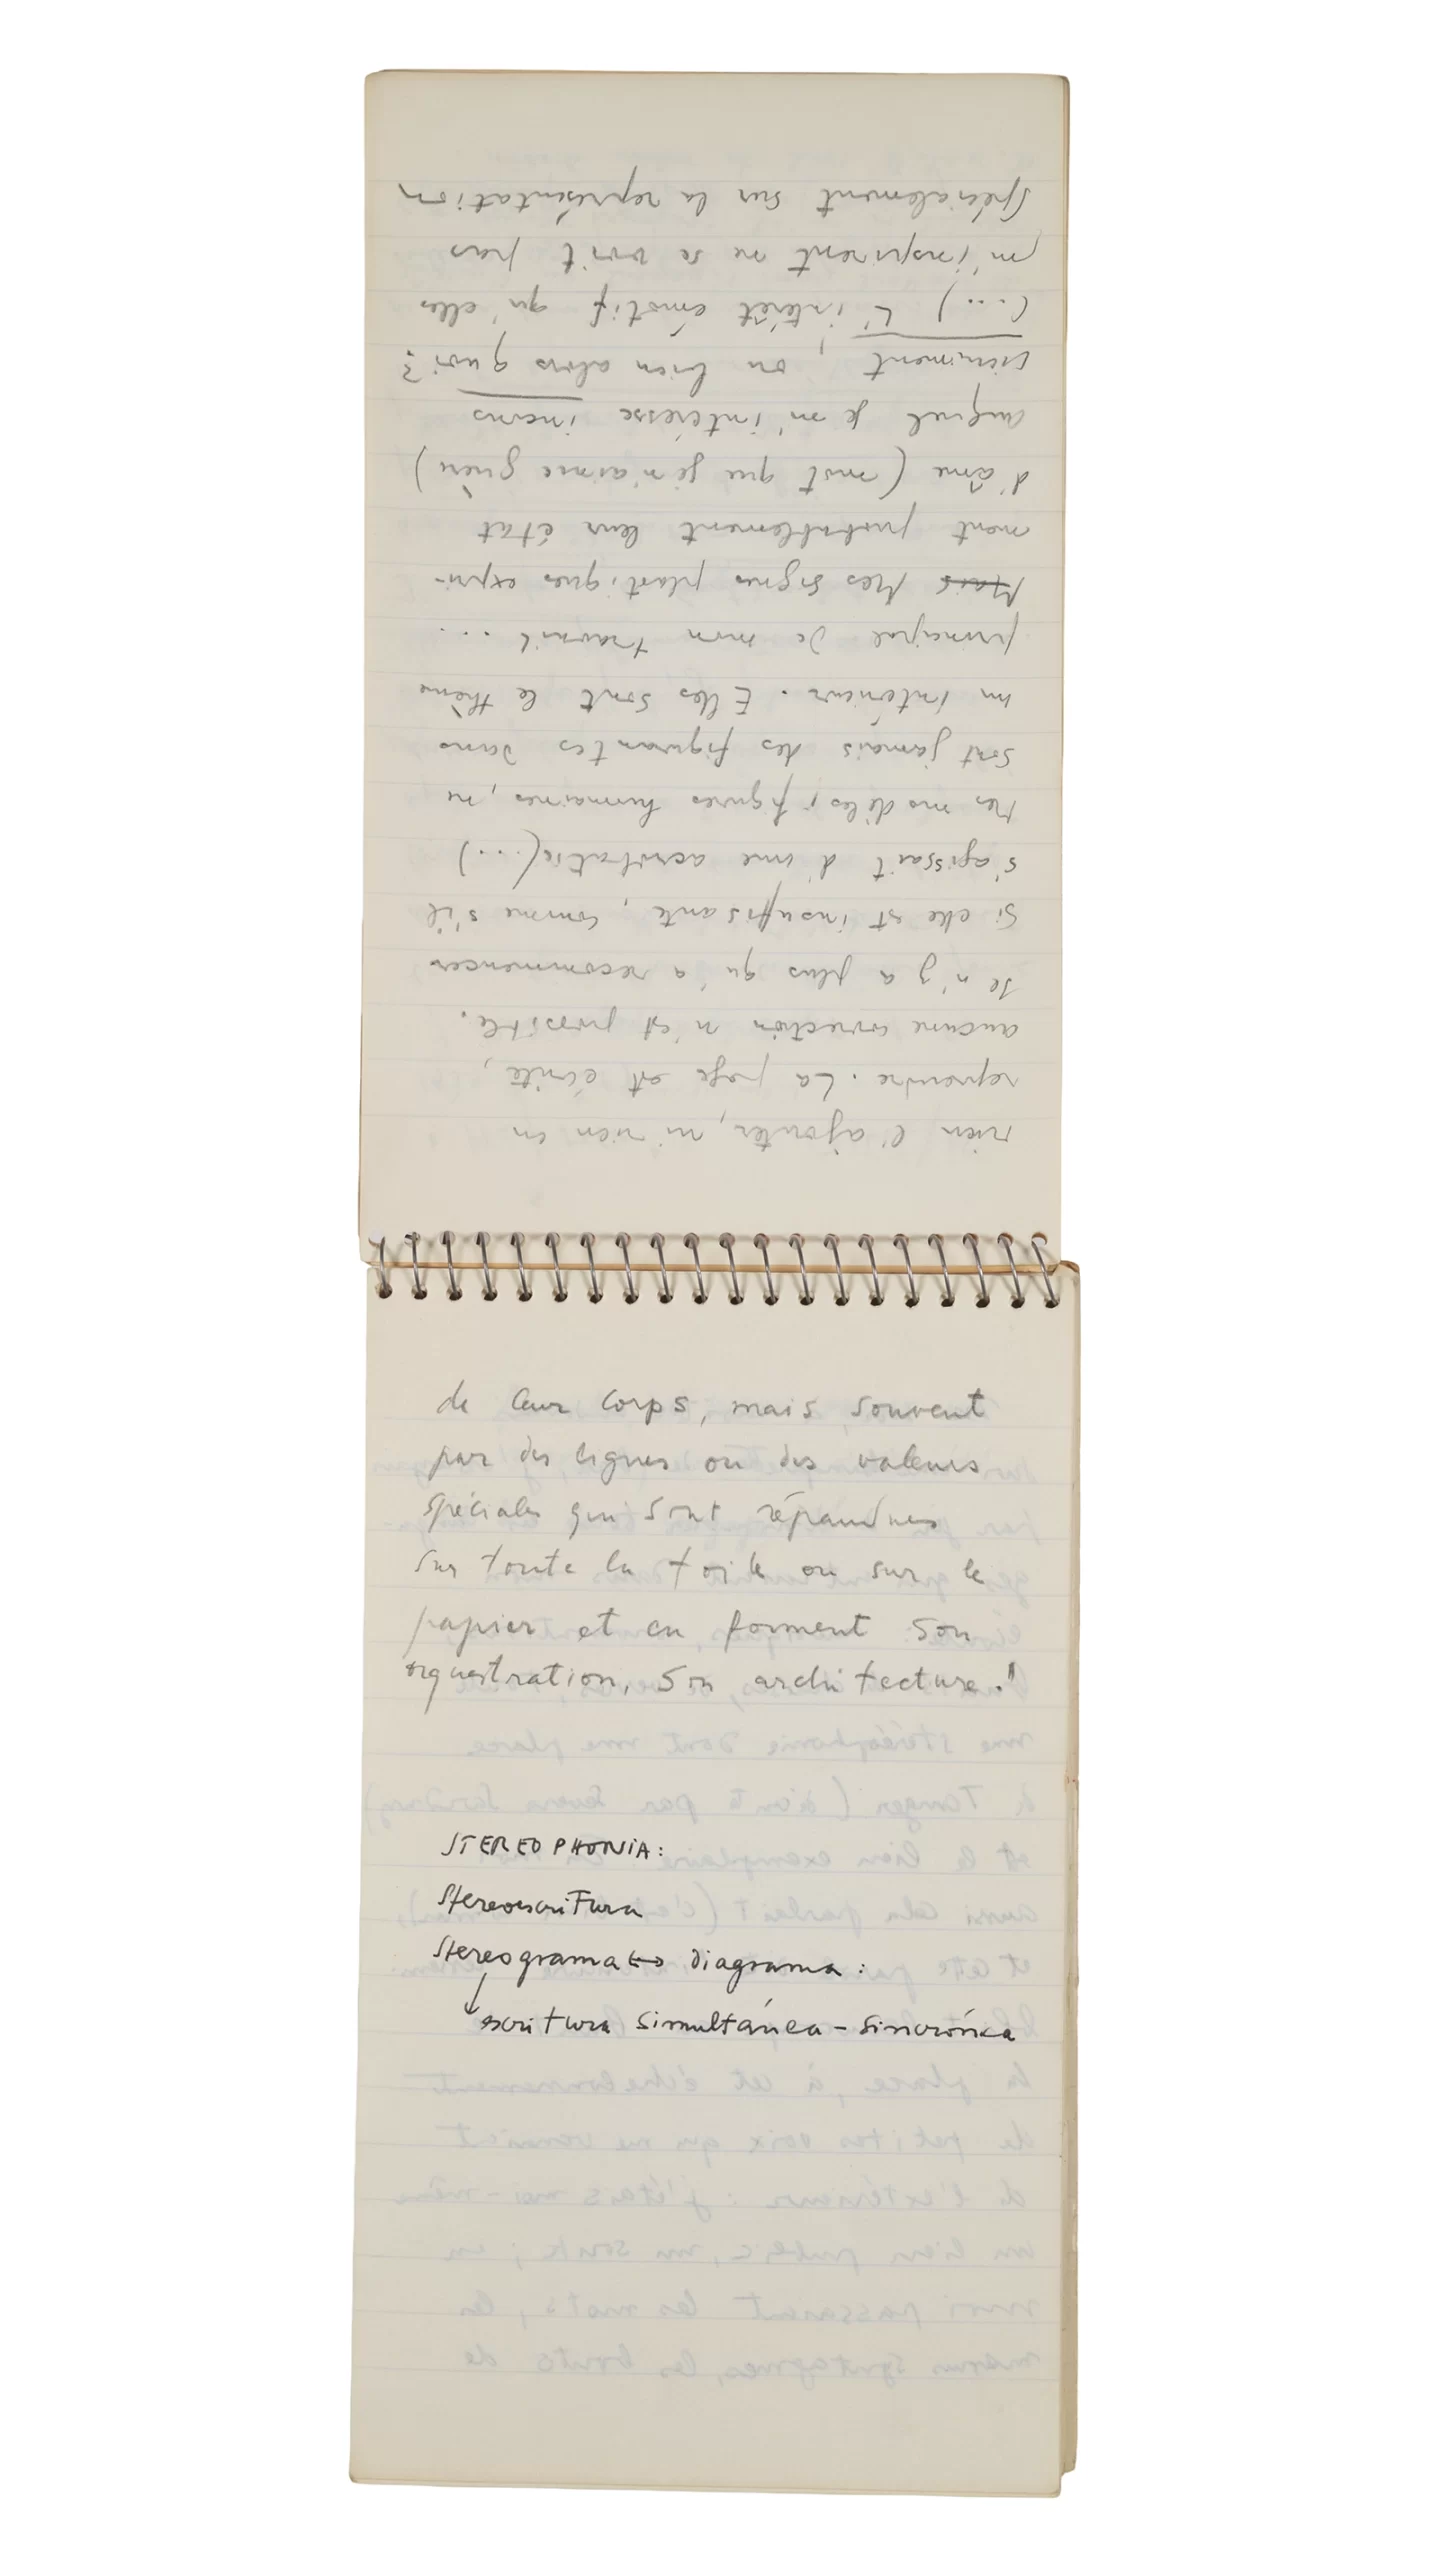 rien l'ajouter, ni rien en
reprendre. La page est écrite,
aucune correction n'est possible.
Il n'y a plus qu'a recommencer
Si elle est insuffisante, comme s'il
s'agissait d'une acrobatie (...)
Mes modèles, figures humaines, ne
sont jamais des figurantes dans
un intérieur. Elles sont le thème
principal de mon travail ...
Mais Mes signes plastiques expri-
ment probablement leur état
d'âme (mot que je n'aime guère)
auquel je m'intéresse incons
ciemment, ou bien alors quoi?
(...) L'intérêt émotif qu'elles
m'inspirent ne se voit pas
Spécialement sur la représentation
de leur corps, mais souvent
par des lignes ou des valeurs
spéciales qui sont répandues
sur toute la toile ou sur le
papier et en forment son
orquestration, son architecture."
STEREOPHONIA:
Stereoescritura
Stereograma ↔ diagrama:
↓ escritura simultánea - sincrónica